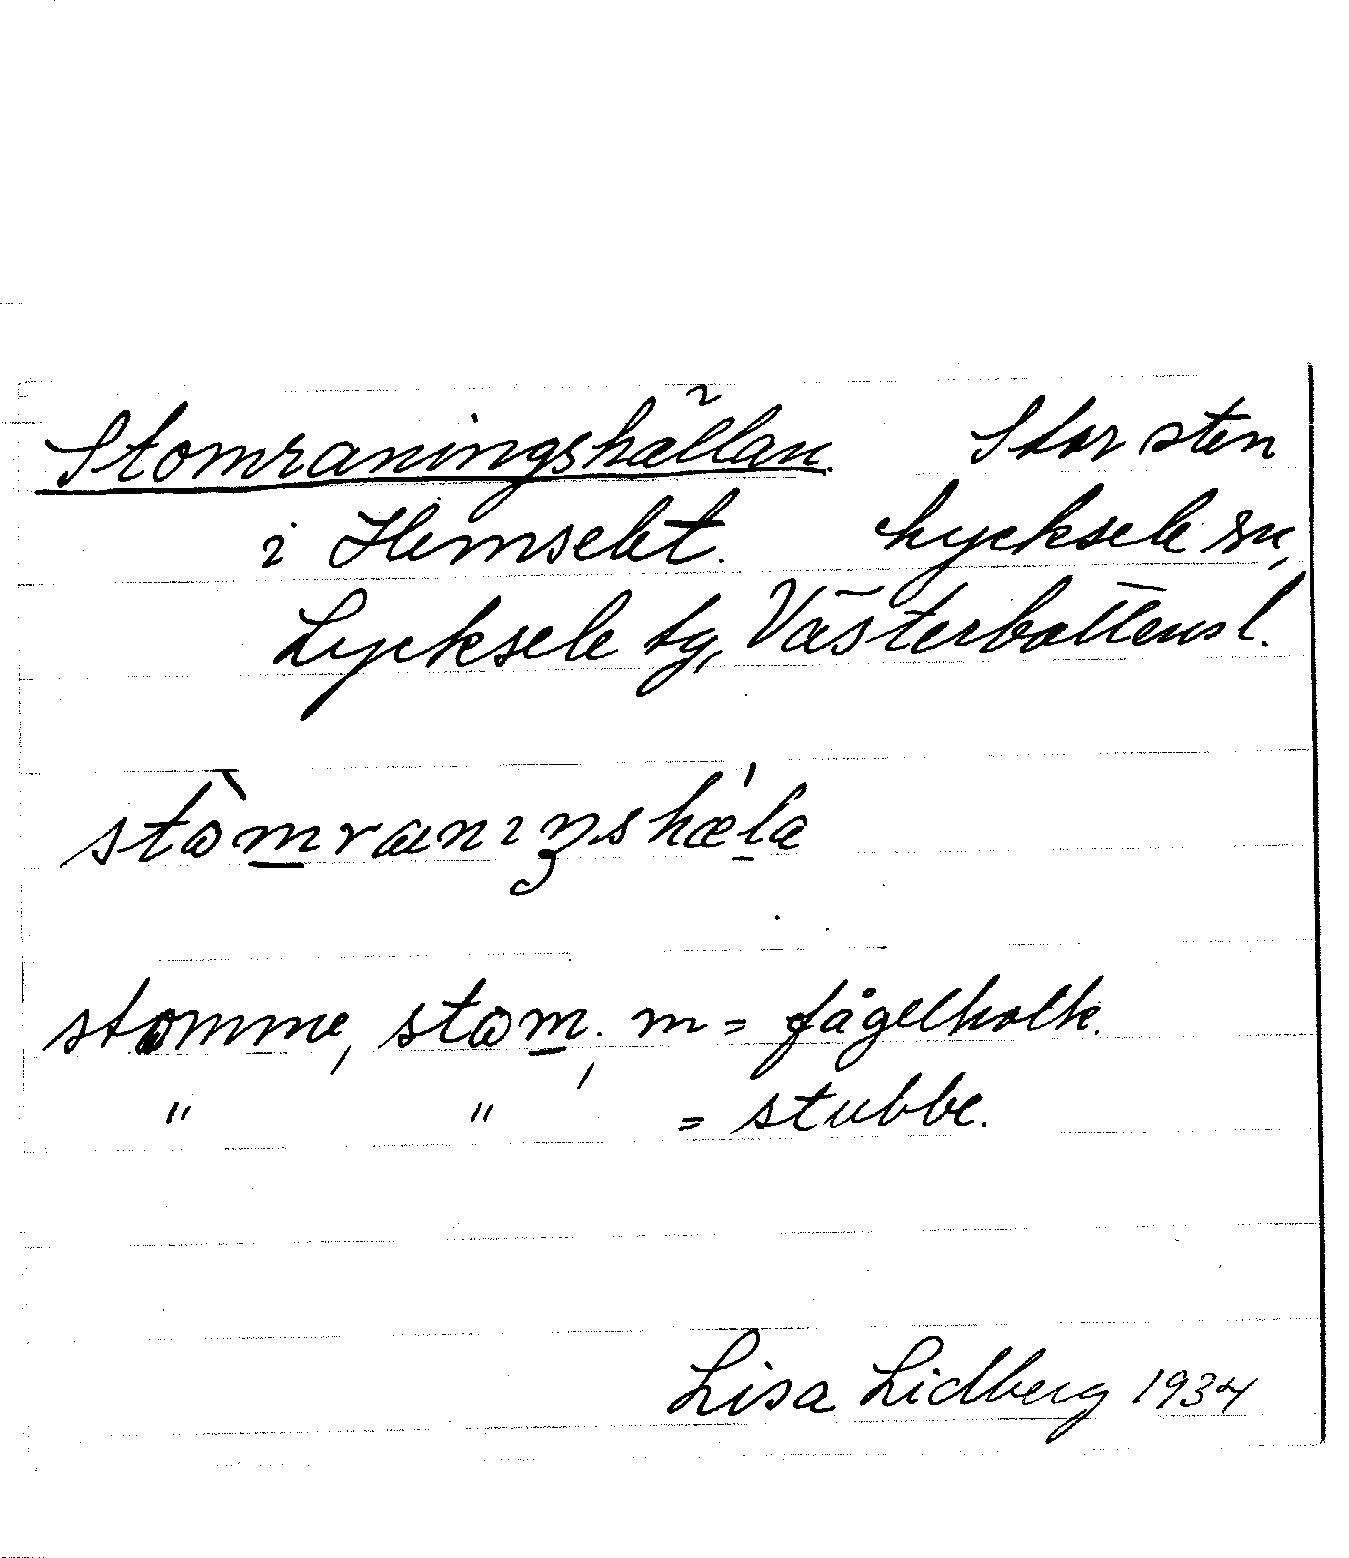 Stomraningshällan. Stor sten
i Hemselet. Lycksele sn,
Lycksele tg, Västerbottens l.
stomme, stɷm. m = fågelholk.
" " = stubbe.
Lisa Lidberg 1934